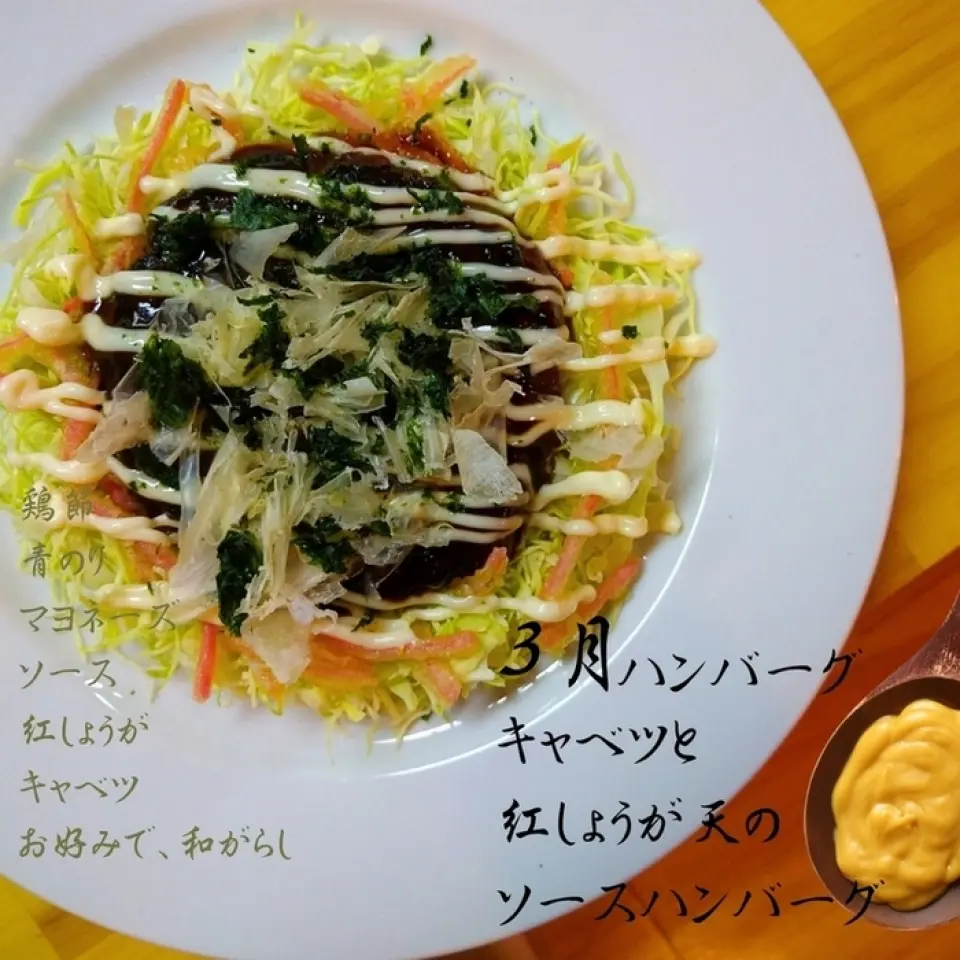 鶏節
青のり
マヨネーズ
ソース
紅しょうが
キャベツ
お好みで、和がらし
3月ハンバーグ
キャベツと
紅しょうが天の
ソースハンバーグ